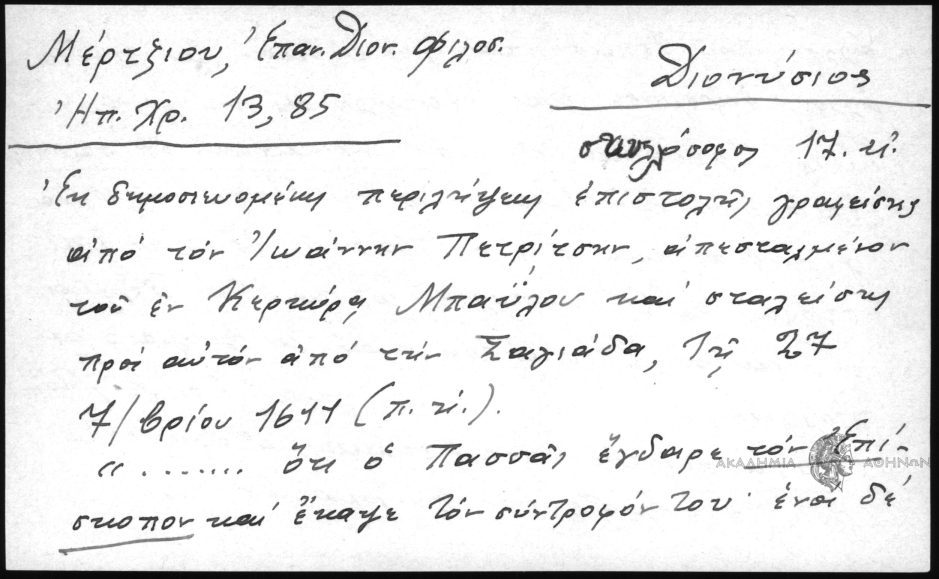 Μέρτζιου, Ἐπαν. Διον. Φιλοσ.
Ἠπ. Χρ. 13, 85
Διονύσιος
σκυλόσοφος 17. αἰ.
Ἐκ δημοσιευομένης περιλήψεως ἐπιστολῆς γραφείσης
ἀπό τόν Ἰωάννην Πετρίτσην, ἀπεσταλμένον
τοῦ ἐν Κερκύρᾳ Μπαΐλου καί σταλείσης
πρός αὐτόν ἀπό τήν Σαγιάδα, τῇ 27
7/βρίου 1611 (π. ἡ.).
"........ ὅτι ὁ Πασσᾶς ἔγδαρε τόν Ἐπί-
σκοπον καί ἔκαψε τόν σύντροφόν του· ἑνός δέ
ΑΚΑΔΗΜΙΑ ΑΘΗΝΩΝ